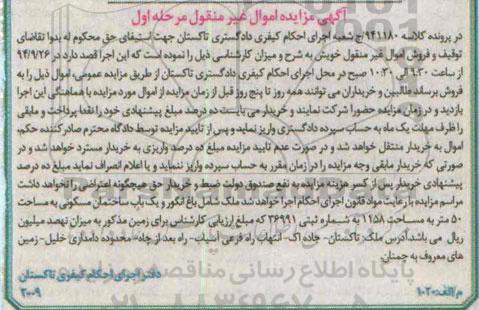 آگهی مزایده اموال غیر منقول مرحله اول
در پرونده کلاسه ۹۴۱۱۸۰/ج شعبه اجرای احکام کیفری دادگستری تاکستان جهت استیفای حق محکوم له بدوا تقاضای
توقیف و فروش اموال غیر منقول خویش به شرح و میزان کارشناسی ذیل را نموده است که این اجرا قصد دارد در ۹۴/۹/۲۶
از ساعت ۹:۳۰ الی ۱۰:۳۰ صبح در محل اجرای احکام کیفری دادگستری تاکستان از طریق مزایده عمومی، اموال ذیل را به
فروش برساند. طالبین و خریداران می توانند همه روز تا پنج روز قبل از زمان مزایده از اموال مورد مزایده با هماهنگی این اجرا
بازدید و در زمان مزایده حضورا شرکت نمایند و خریدار می بایست ده درصد مبلغ پیشنهادی خود را نقدا پرداخت و مابقی
را ظرف مهلت یک ماه به حساب سپرده دادگستری واریز نماید و پس از تایید مزایده توسط دادگاه محترم صادرکننده حکم،
اموال به خریدار منتقل خواهد شد و در صورت عدم تایید مزایده مبلغ ده درصد واریزی به خریدار مسترد خواهد شد و در
صورتی که خریدار مابقی وجه مزایده را در زمان مقرر به حساب سپرده واریز ننماید و یا اعلام انصراف نماید مبلغ ده درصد
پیشنهادی خریدار پس از کسر هزینه مزایده به نفع صندوق دولت ضبط و خریدار حق هیچگونه اعتراضی را نخواهد داشت
مراسم مزایده با رعایت مواد قانون اجرای احکام اجرا خواهد شد. ملک شامل باغ انگور و یک باب ساختمان مسکونی به مساحت
۵۰ متر به مساحت ۱۱۵۸ به شماره ثبتی ۳۶۹۹۱ که مبلغ ارزیابی کارشناس برای زمین مذکور به میزان نهصد میلیون
ریال می باشد. آدرس ملک: تاکستان- جاده اک- انتهاب راه فرعی آسیاب- راه بعد از چاه- محدوده دامداری خلیل- زمین
های معروف به چمنان.
دفتر اجرای احکام کیفری تاکستان
م/الف:۱۰۲۰
۲۰۰۹
پایگاه اطلاع رسانی مناقصه